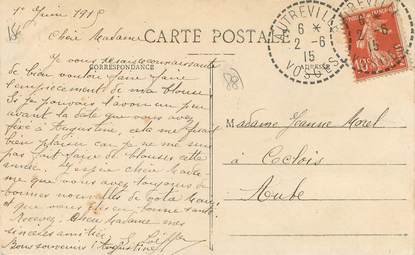 1er Juin 1915
Chère Madame
CARTE POSTALE
CORRESPONDANCE
ADRESSE
AUTREVILLE
6 *
2 - 6
15
VOSGES
2 - 6
15
10
Je vous serais reconnaissante
de bien vouloir faire faire
l'empiècement de ma blouse
Si je pouvais l'avoir un peu
avant la date que vous avez
fixé à Augustine, cela me ferait
bien plaisir car je ne me suis
pas fait faire de blouses cette
année. J'espère chère Mada
me que vous avez toujours de
bonnes nouvelles de votre Mari
et que vous êtes en bonne santé.
Recevez Chère Madame mes
sincères amitiés.
Bons souvenirs d'Augustine
Madame Jeanne Morel
à Eclois
Aube